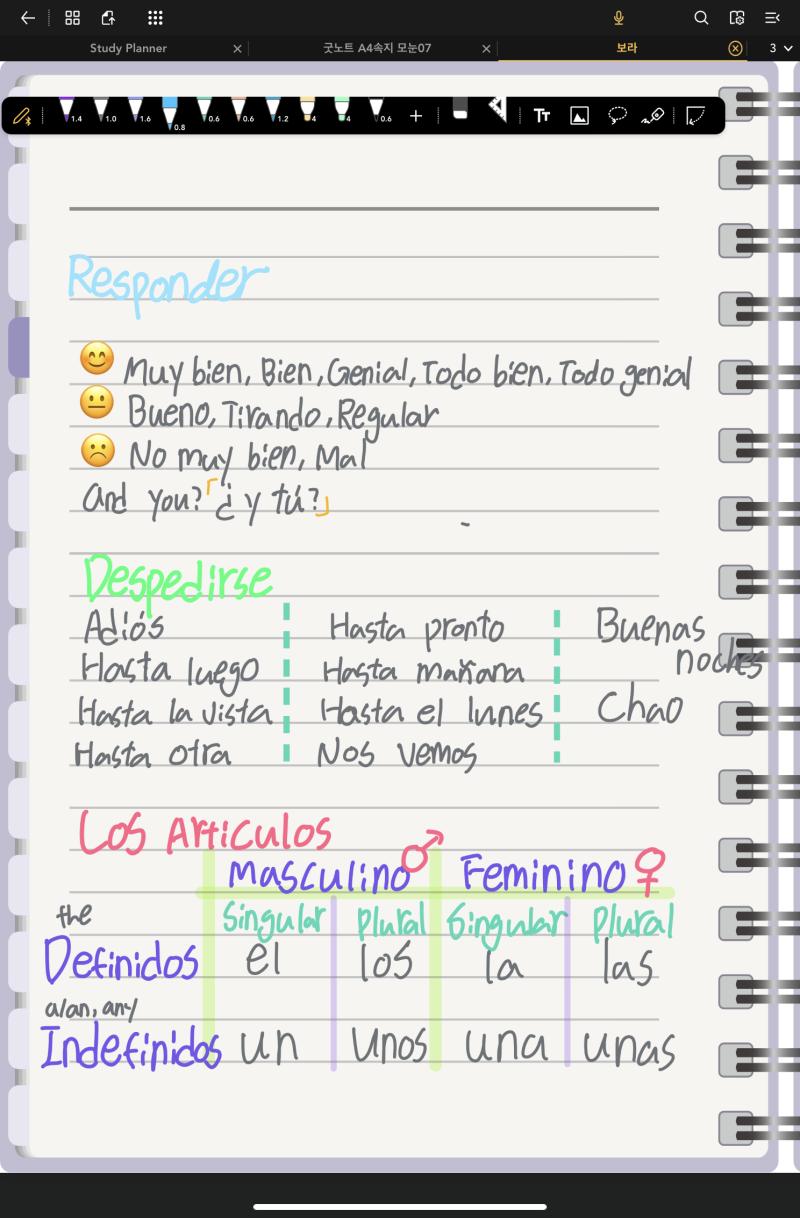 Study Planner 굿노트 A4속지 모눈07 보라 3
1.4 1.0 1.6 0.8 0.6 0.6 1.2 4 4 0.6 TT
Responder
Muy bien, Bien, Genial, Todo bien, Todo genial
Bueno, Tirando, Regular
No muy bien, Mal
And you? 「¿y tú?」
Despedirse
Adiós Hasta pronto Buenas
noches
Hasta luego Hasta mañana
Hasta la vista Hasta el lunes Chao
Hasta otra Nos vemos
Los Artículos
Masculino Feminino
the Singular Plural Singular Plural
Definidos el los la las
a/an, any
Indefinidos un Unos una unas